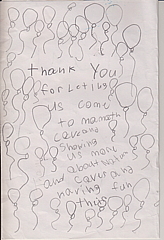 thank You
for Letting
us come
to mamoth
cave and
showing
us more
about bats
and cave and
having fun
thus